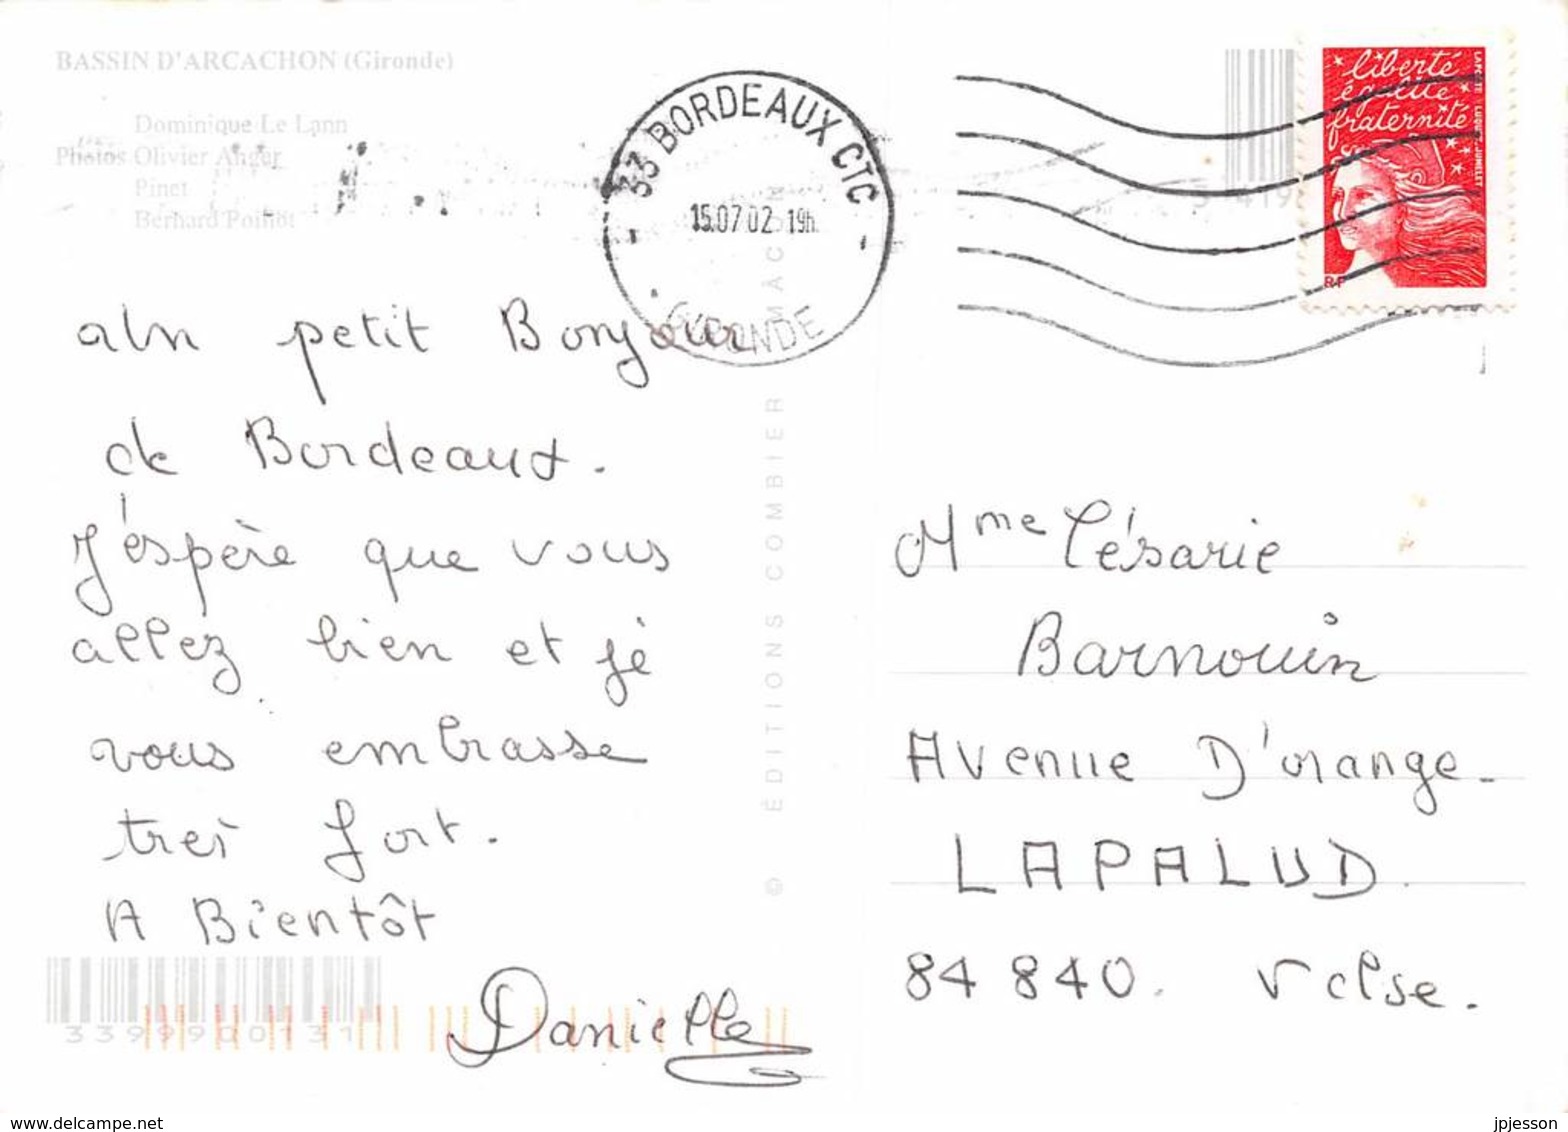 BASSIN D'ARCACHON (Gironde)
Dominique Le Lann
Photos Olivier Anger
Pinet
Bernard Poinot
33 BORDEAUX CTC
15.07 02 19h.
GIRONDE
liberté
égalité
fraternité
RF
Un petit Bonjour
de Bordeaux.
J'éspère que vous
allez bien et je
vous embrasse
très fort.
A Bientôt
Danielle
© ÉDITIONS COMBIER MACON
3399990013
Mme Césarie
Barnouin
Avenue D'orange.
LAPALUD.
84 840. Vclse.
delcampe.net
jpjesson